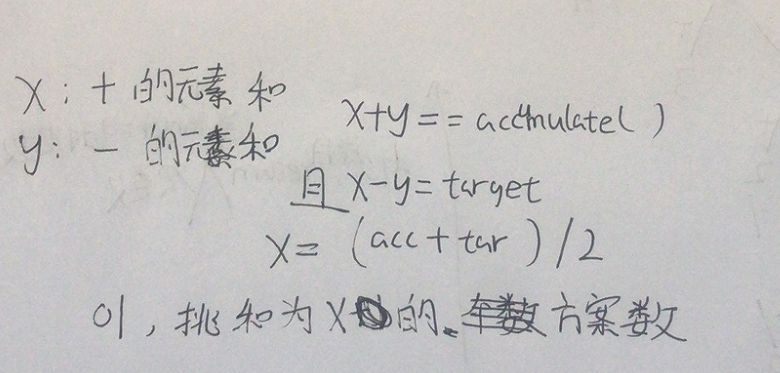 x：+ 的元素和
y：- 的元素和
x+y == accmulate( )
且 x-y = target
x = (acc + tar) / 2
01，挑和为x的 方案数